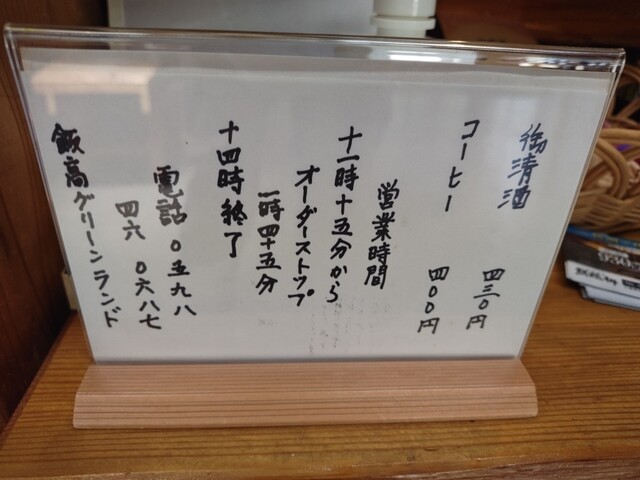 御清酒 四三〇円
コーヒー 四〇〇円
営業時間
十一時十五分から
オーダーストップ
一時四十五分
十四時終了
電話 〇五九八
四六 〇六八七
飯高グリーンランド